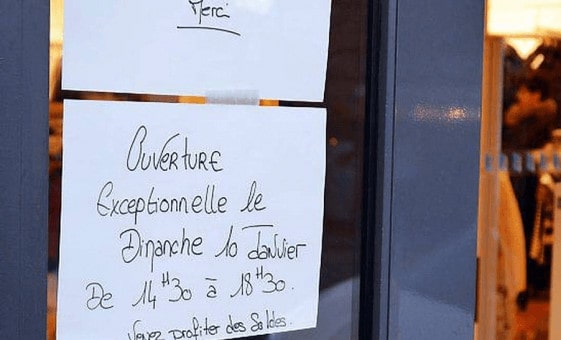 Merci
Ouverture
Exceptionnelle le
Dimanche 10 Janvier
De 14H30 à 18H30.
Venez profiter des Soldes.